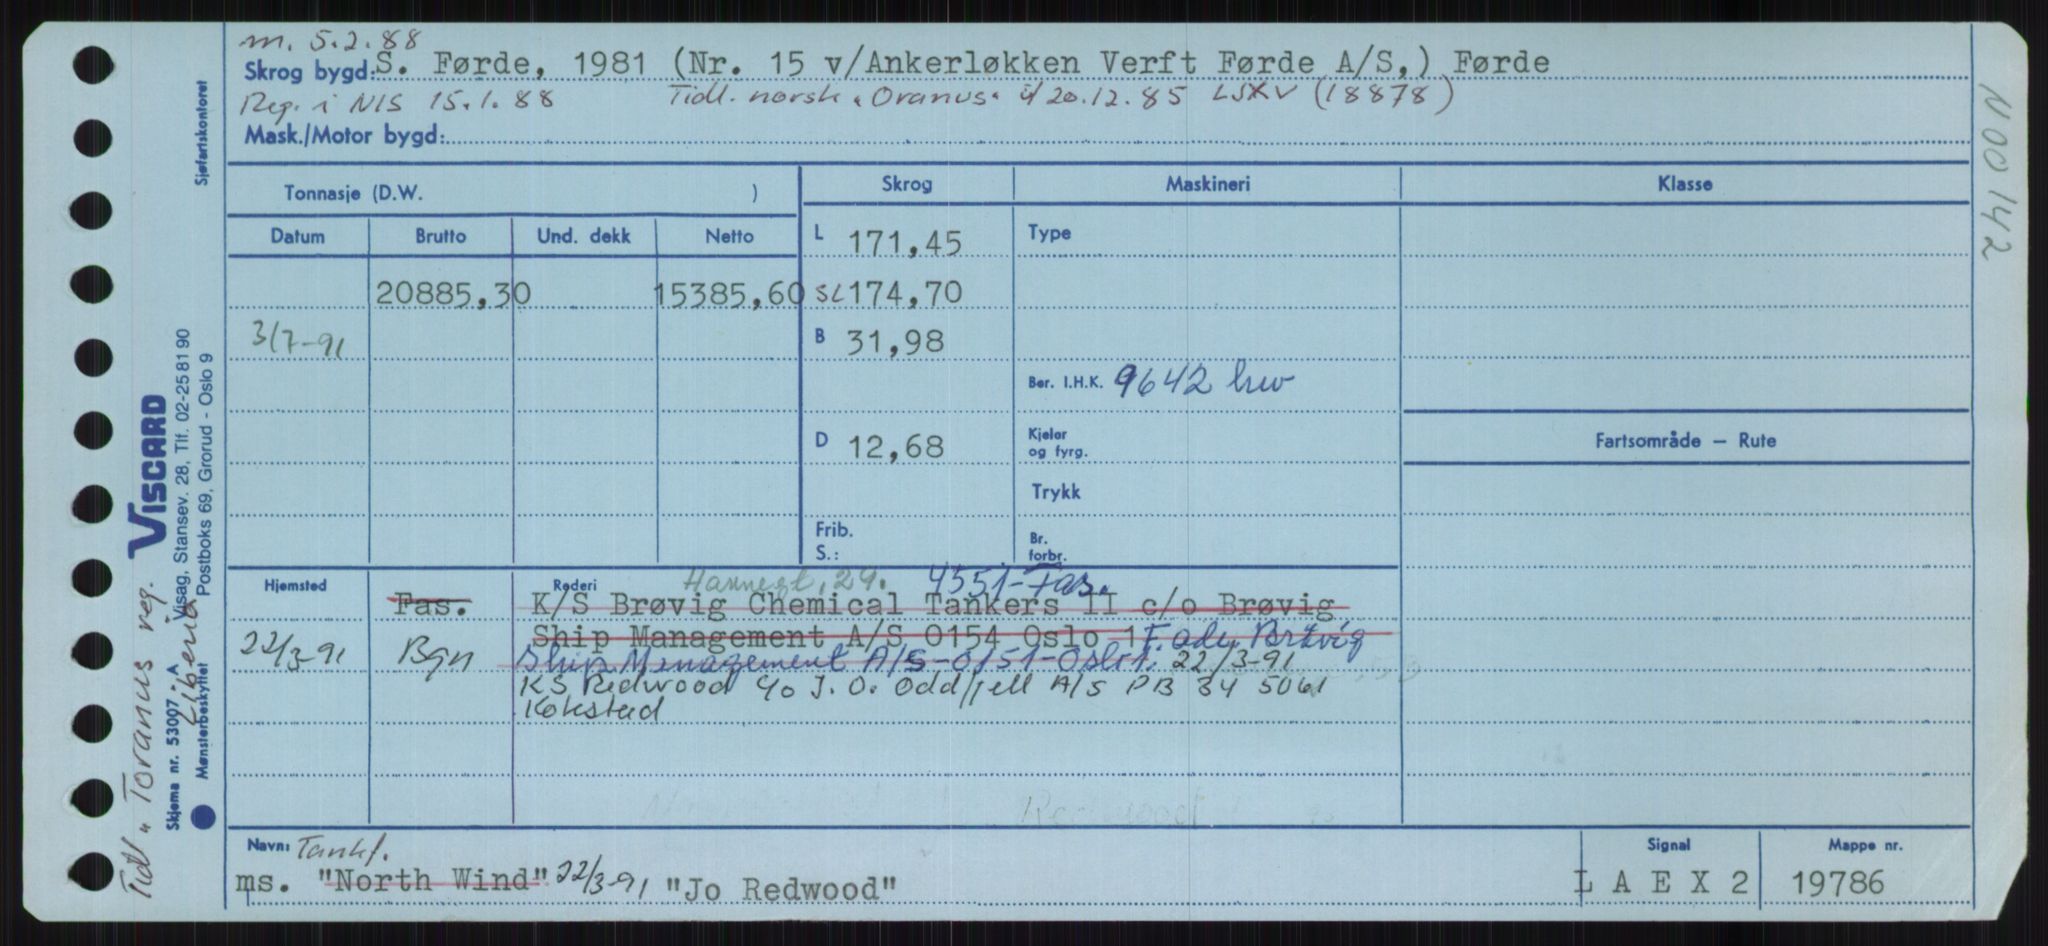 m. 5.2.88
Skrog bygd: S. Førde, 1981 (Nr. 15 v/Ankerløkken Verft Førde A/S,) Førde
Reg. i NIS 15.1.88 Tidl. norsk "Oranus" if 20.12.85 LSXV (18878)
Mask./Motor bygd:
Tonnasje (D.W. )
Skrog Maskineri Klasse
Datum Brutto Und. dekk Netto
L 171,45 Type
20885,30 15385,60 SL 174,70
3/7-91 B 31,98
Ber. I.H.K. 9642 kw
D 12,68 Kjeler og fyrg.
Fartsområde – Rute
Trykk
Frib. S.: Br. forbr.
Hjemsted Rederi Havnegt, 29. 4551-Fas.
Fas. K/S Brøvig Chemical Tankers II c/o Brøvig
Ship Management A/S 0154 Oslo 1 F. ady. Brøvig
22/3-91 Bgn Ship Management A/S-0151-Oslo 1. 22/3-91
KS Redwood c/o J.O. Oddfjell A/S PB 34 5061
Kokstad
Redwood
Navn: Tankf.
ms. "North Wind" 22/3-91 "Jo Redwood"
Signal LAEX2
Mappe nr. 19786
N00142
Sjøfartskontoret
VISCARD
Visag, Stansev. 28, Tlf. 02-25 81 90
Postboks 69, Grorud - Oslo 9
Skjema nr. 53007 - A
Mønsterbeskyttet
Tidl "Toranus reg.
Liberia